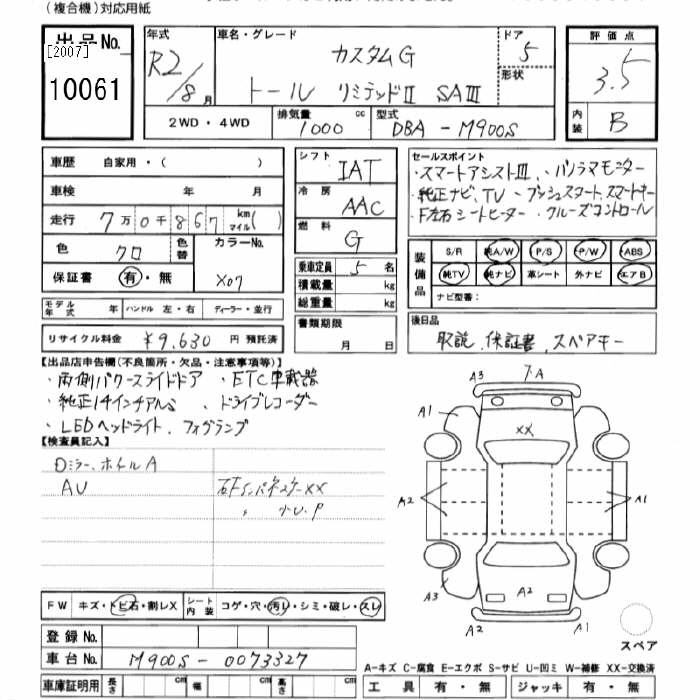 (複合機)対応用紙
出品No.
[2007]
10061
年式
R2/8月
車名・グレード
カスタムG
トール リミテッドII SAIII
ドア
5
形状
評価点
3.5
内装
B
2WD・4WD
排気量
1000 cc
型式
DBA-M900S
車歴 自家用・( )
車検 年 月
走行 7万0千867 km マイル( )
色 クロ
色替
カラーNo.
X07
保証書 有・無
モデル年式 年 ハンドル 左・右 ディーラー・並行
リサイクル料金 ¥9,630 円 預託済
シフト
IAT
冷房
AAC
燃料
G
乗車定員 5 名
積載量 kg
総重量 kg
書類期限
月 日
セールスポイント
・スマートアシストIII、・パノラマモニター
・純正ナビ、TV・プッシュスタート、スマートキー
・F左右シートヒーター・クルーズコントロール
装備品
S/R 純A/W P/S P/W ABS
純TV 純ナビ 革シート 外ナビ エアB
ナビ型番:
後日品
取説、保証書、スペアキー
【出品店申告欄(不良箇所・欠品・注意事項等)】
・両側パワースライドドア ・ETC車載器
・純正14インチアルミ 、ドライブレコーダー
・LEDヘッドライト、フォグランプ
【検査員記入】
Dミラー、ホイールA
AU
右FインパネステーXX
〃 小U、P
A3 7.A
A1
XX
A2
A1
A3
A2
A2 A1
スペア
FW キズ・トビ石・割レX
シート内装 コゲ・穴・汚レ・シミ・破レ・スレ
登録No.
車台No. M900S-0073327
車庫証明用 長さ cm 幅 cm 高さ cm
A-キズ C-腐食 E-エクボ S-サビ U-凹ミ W-補修 XX-交換済
工具 有・無 ジャッキ 有・無